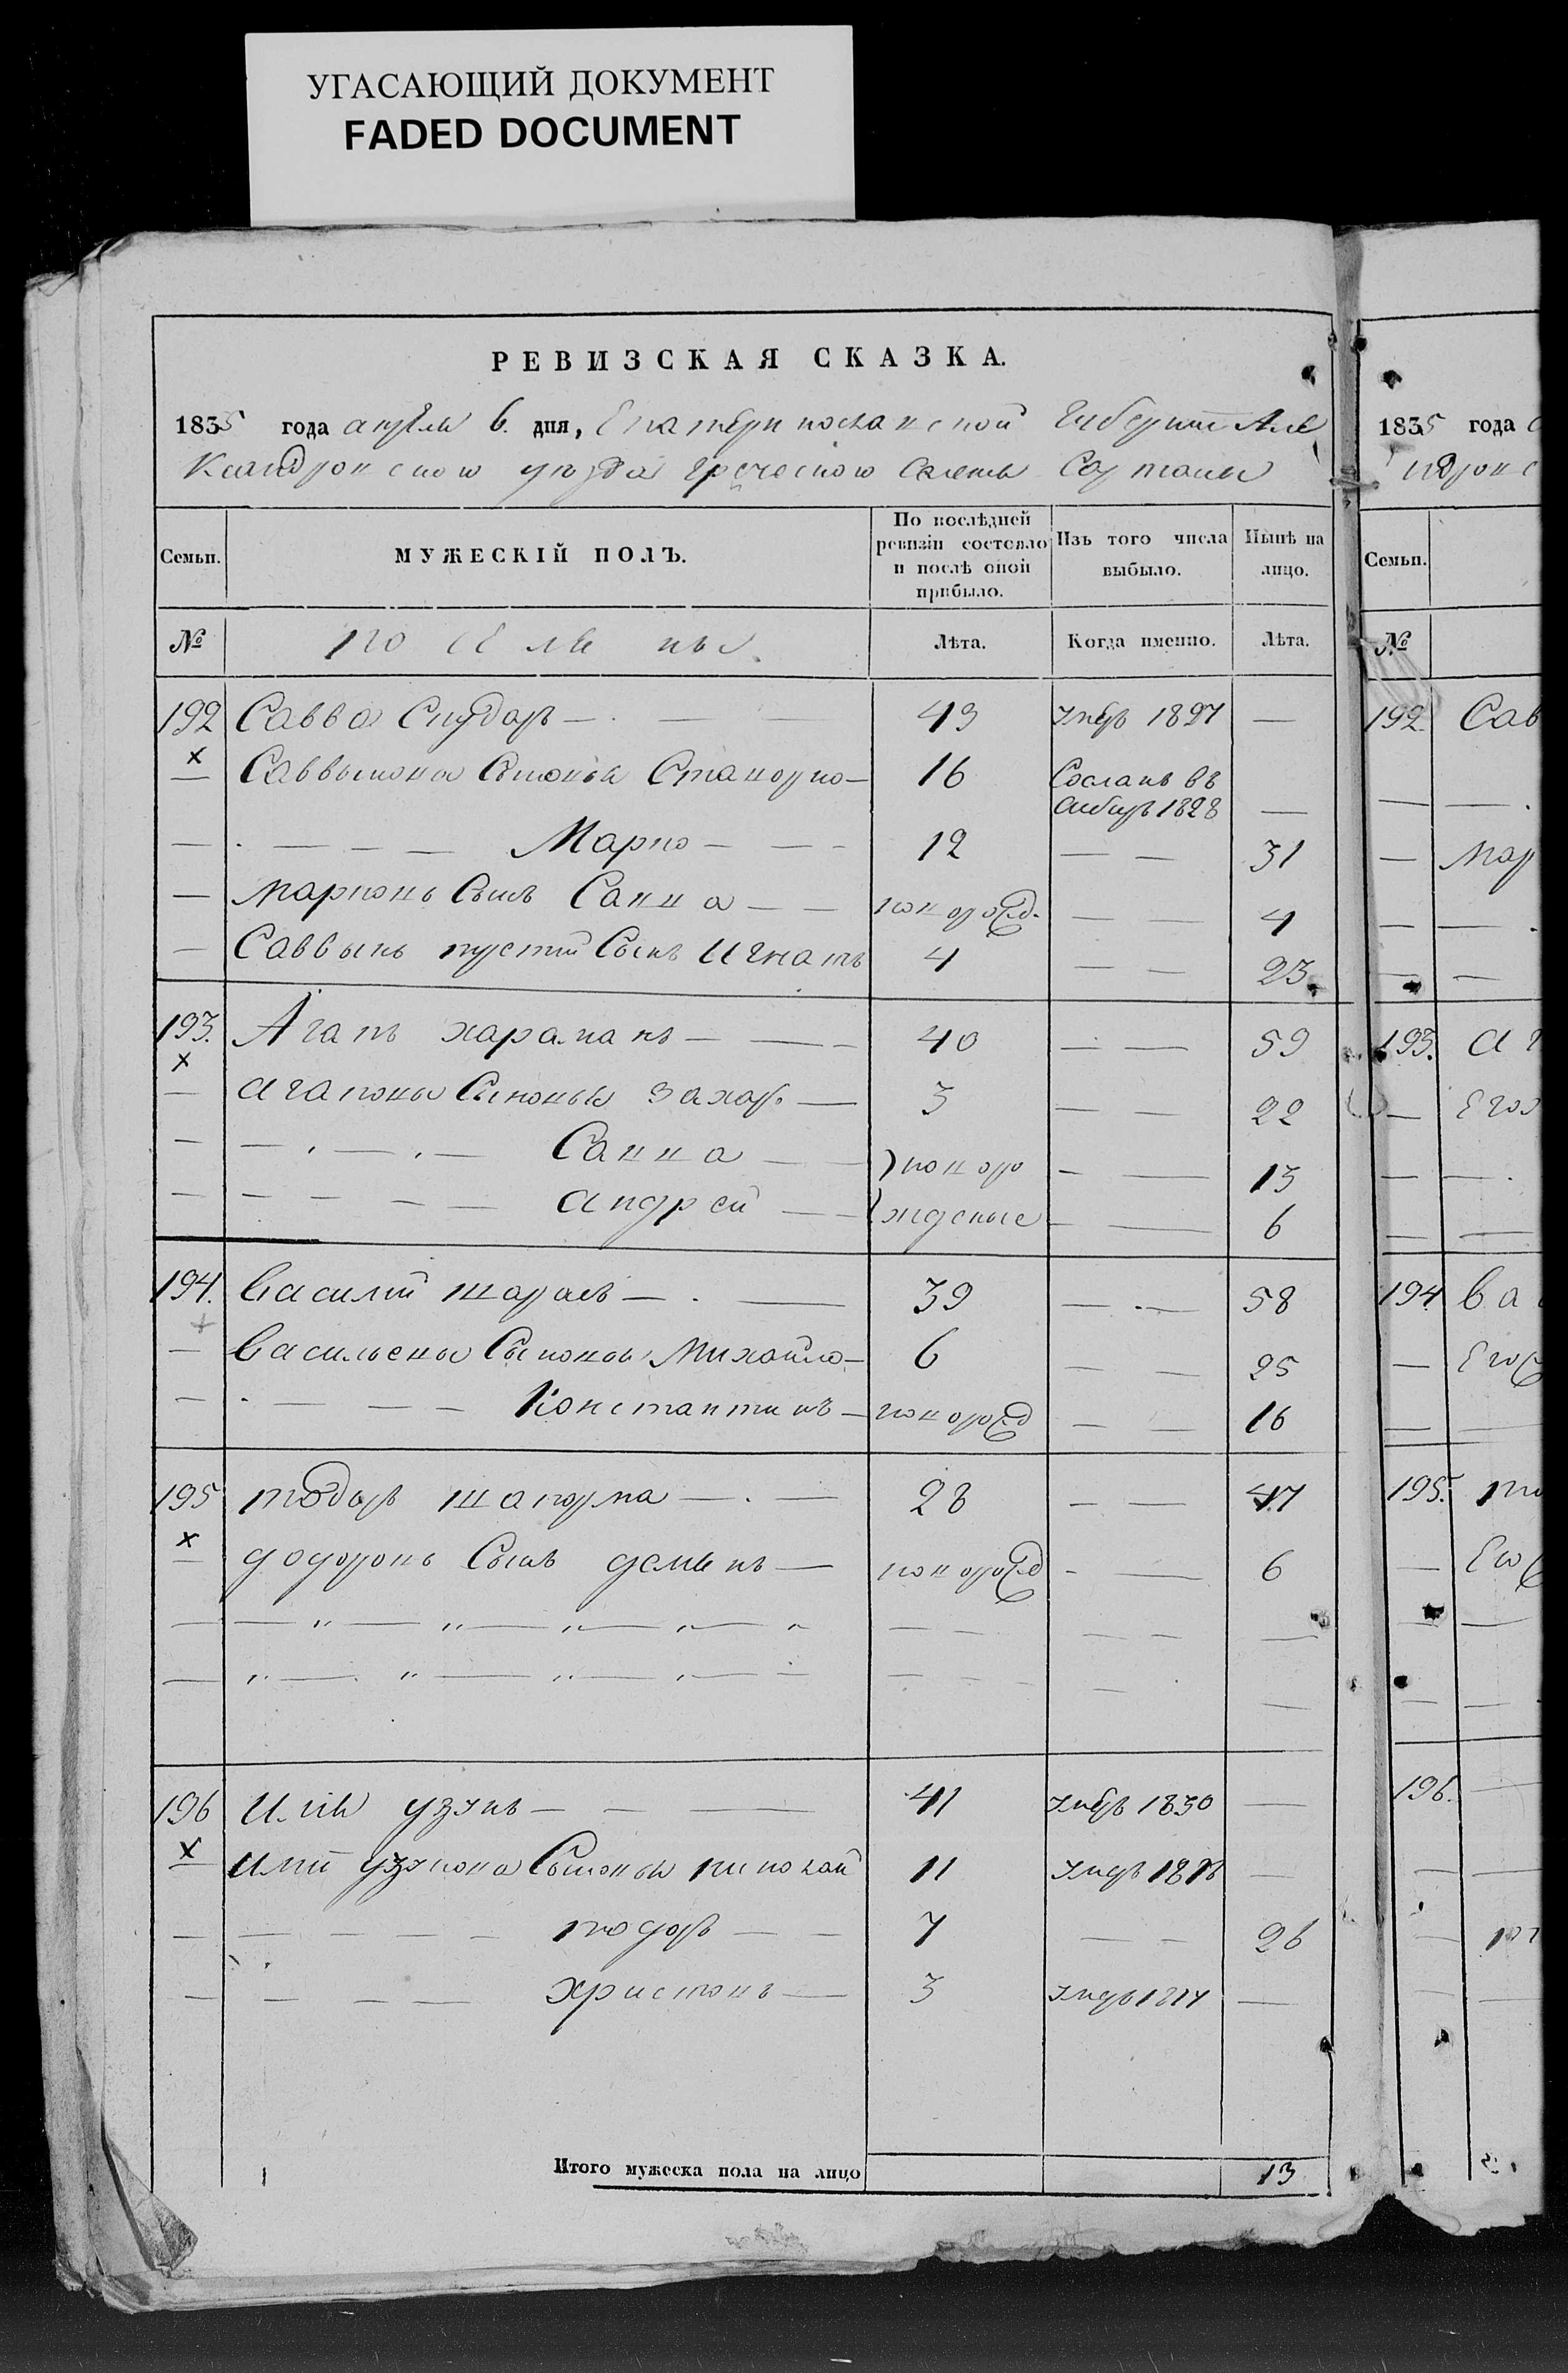 УГАСАЮЩИЙ ДОКУМЕНТ
FADED DOCUMENT
РЕВИЗСКАЯ СКАЗКА.
1835 года апреля 6. дня, Екатеринославской Губернии Але
ксандровского уезда греческого Селенья Сартаны
1835 года
Семьи.
МУЖЕСКІЙ ПОЛЪ.
По послѣдней ревизіи состояло и послѣ оной прибыло.
Изъ того числа выбыло.
Нынѣ на лицо.
Семьи.
№
поселяне
Лѣта.
Когда именно.
Лѣта.
№
192 Савва Спударъ — 43 умеръ 1827 —
192 Сав
х Саввы Сыновья 16 Сосланъ въ
Сибирь 1828 —
Марко — 12 — — 31
Мар
— Марковъ Сынъ Савва — новорожд. — — 4
— Саввынъ Сынъ Игнатъ 4 — — 23
193. Агапъ — 40 — — 59
193. Аг
х
— Агаповы Сыновья Захаръ — 3 — — 22
Его
— Савва — новоро — — 13
— Андрей — жденые — — 6
194. Василий — 39 — — 58
194 Ва
— Васильевы Сыновья Михайло — 6 — — 25
Его
— Константинъ — новорожд — — 16
195 Тодоръ Шапурма — 28 — — 47
195.
х Сынъ Демьянъ — новорожд — — 6
Его
196 Илья Узунъ — 41 умеръ 1830 —
196.
х Сыновья Николай 11 —
— Тодоръ — 7 — — 26
— 3 —
Итого мужеска пола на лицо 13